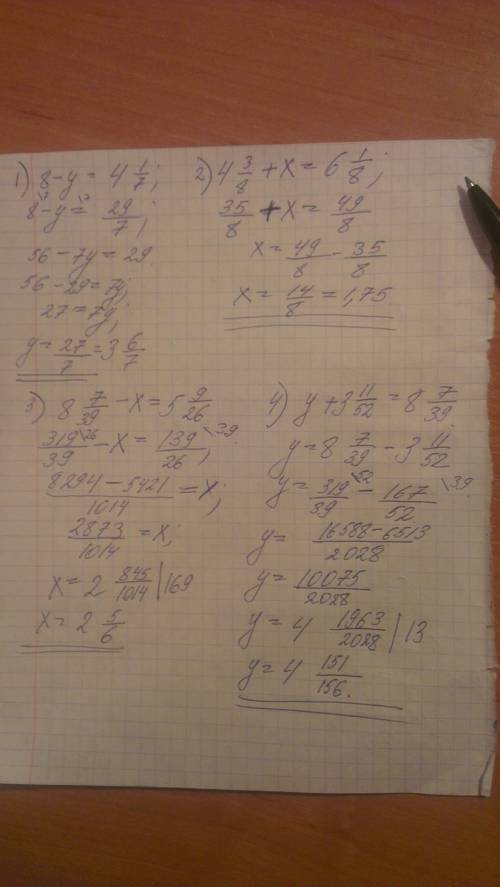 1) 8-y = 4 1/7;
8-y = 29/7;
56-7y = 29
56-29 = 7y;
27 = 7y;
y = 27/7 = 3 6/7
2) 4 3/8 + x = 6 1/8;
35/8 + x = 49/8
x = 49/8 - 35/8
x = 14/8 = 1,75
3) 8 7/39 - x = 5 9/26
319/39 \26 - x = 139/26 \39;
8294-5421/1014 = x;
2873/1014 = x;
x = 2 845/1014 | 169
x = 2 5/6
4) y + 3 11/52 = 8 7/39
y = 8 7/39 - 3 11/52
y = 319/39 \52 - 167/52 \39
y = 16588-6513/2028
y = 10075/2028
y = 4 1963/2028 | 13
y = 4 151/156.